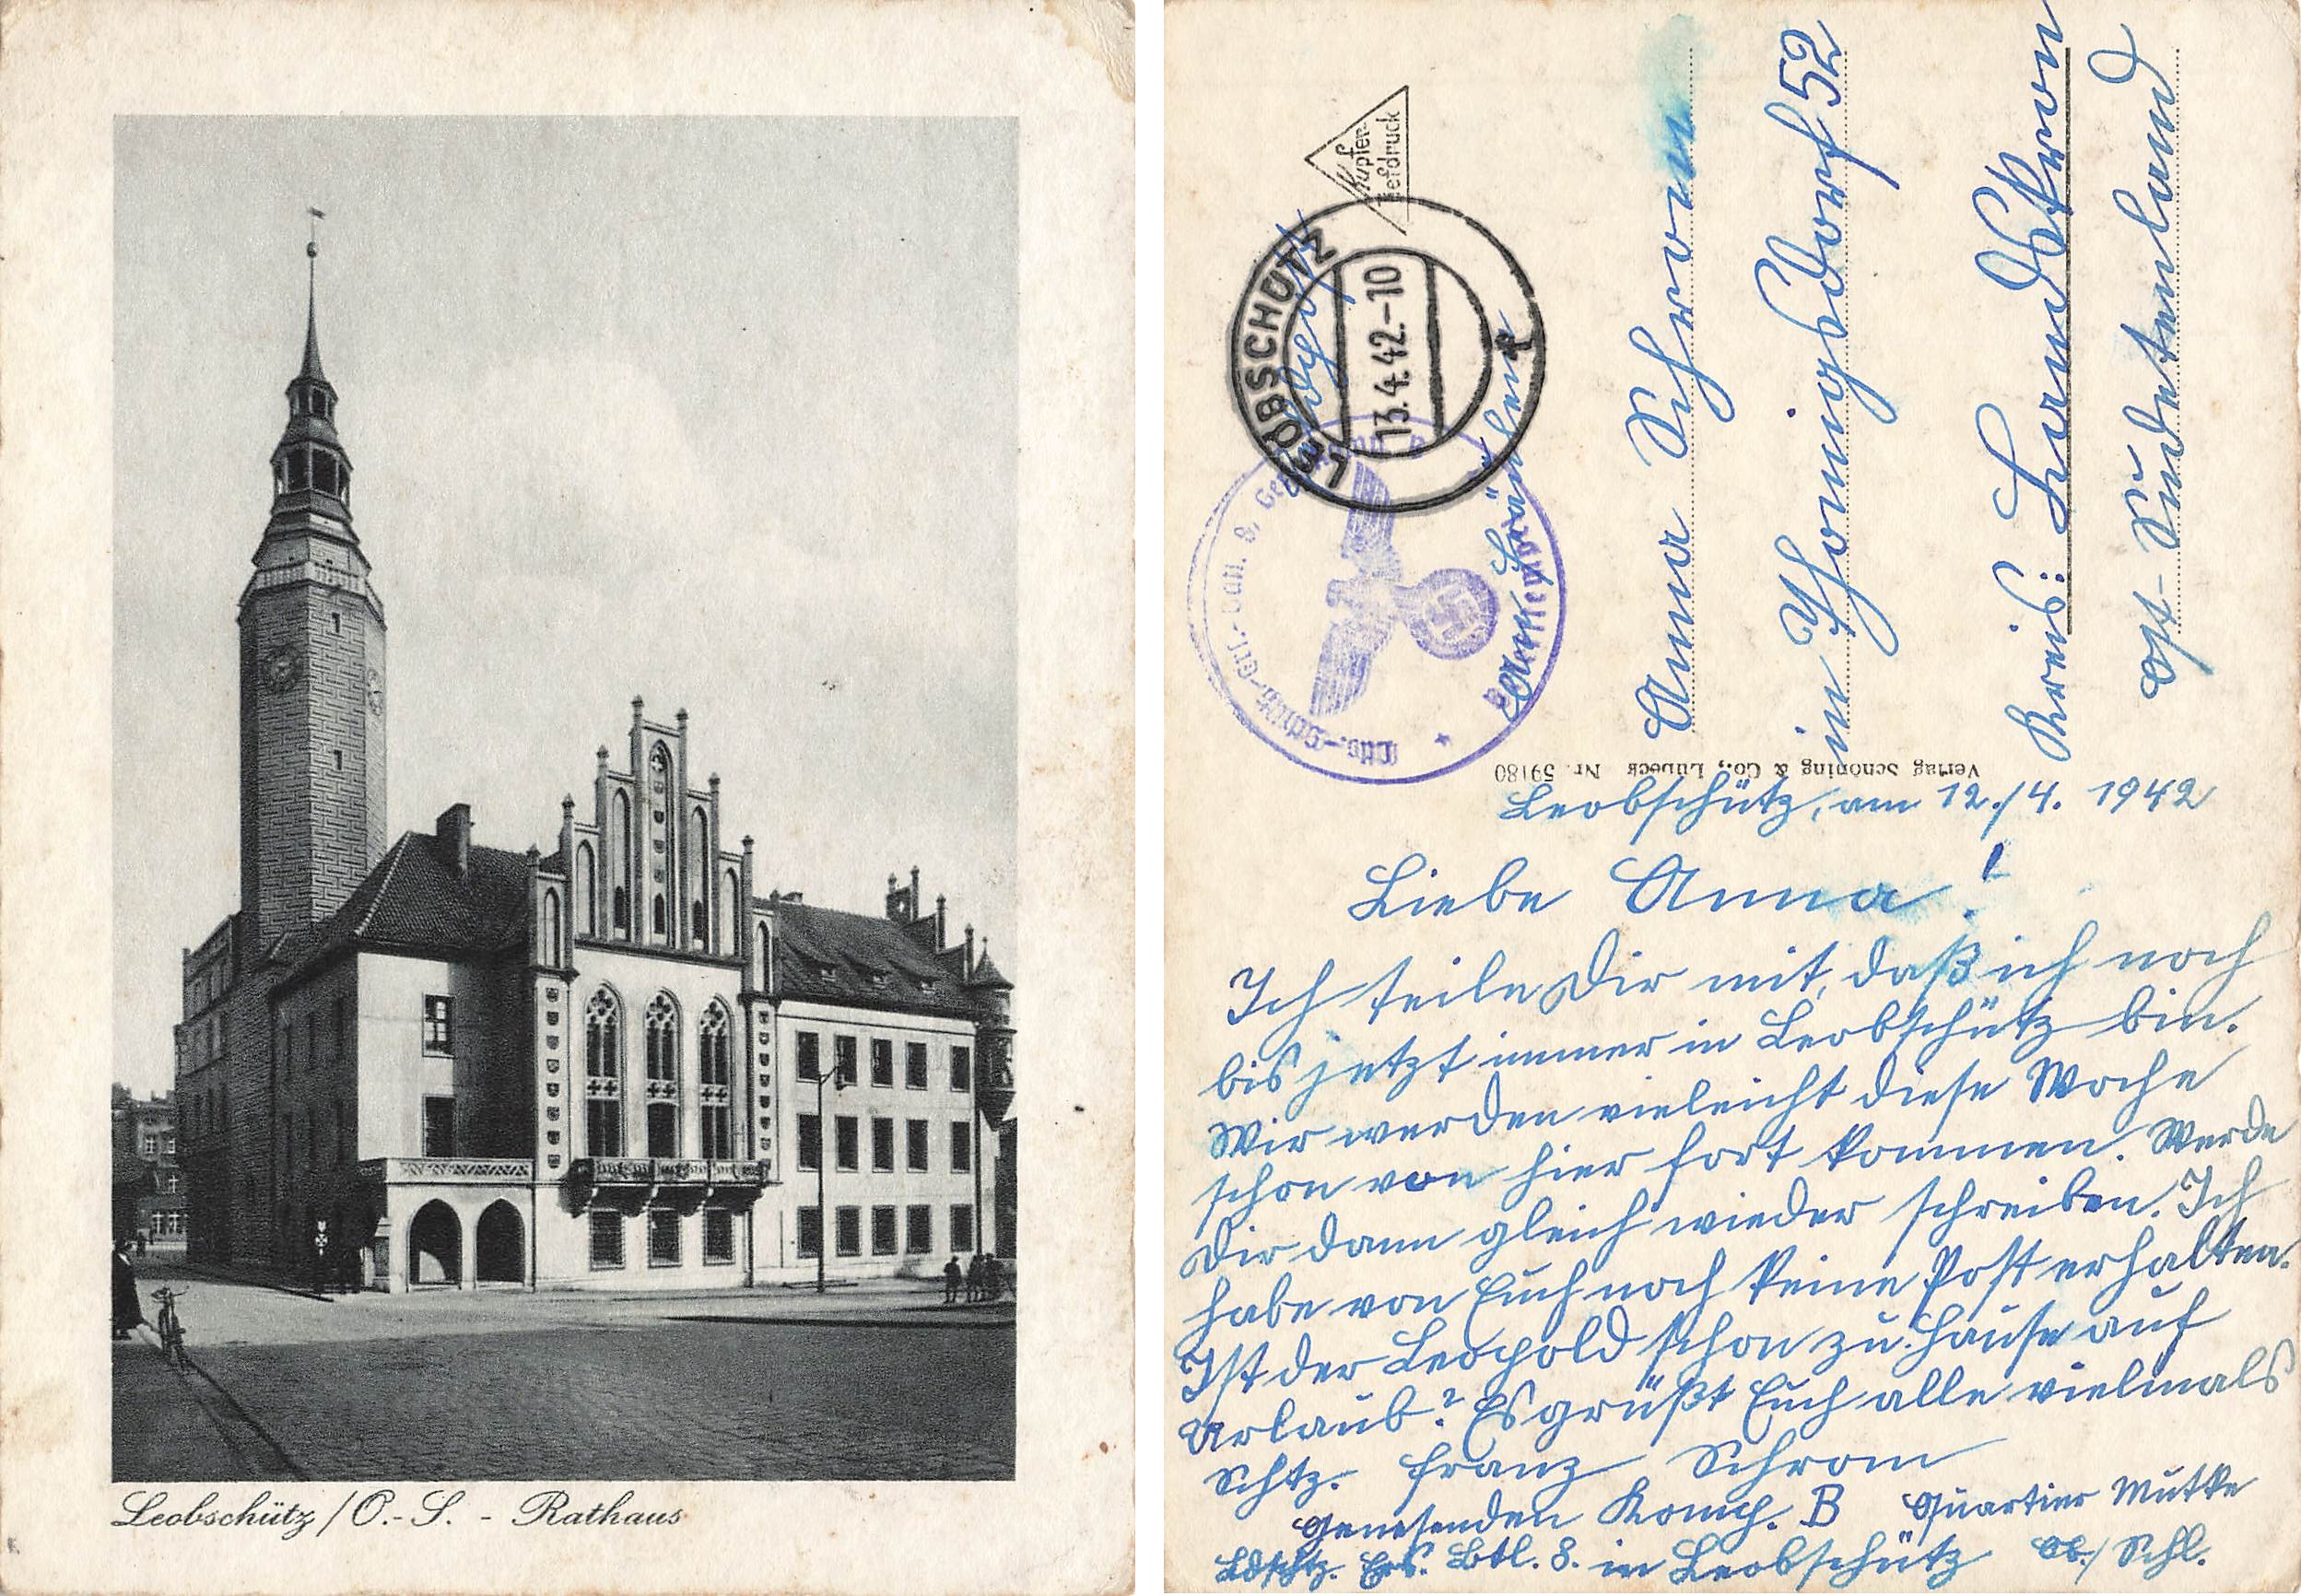 Leobschütz / O.-S. - Rathaus
Kupfer-
tiefdruck
LEOBSCHÜTZ
13.4.42.-10
Anna Schrom
in Thomigsdorf 52
Kreis: Landskron
Ost-Sudetenland
Verlag Schöning & Co., Lübeck Nr. 59180
Leobschütz, am 12./4. 1942
Liebe Anna!
Ich teile Dir mit, daß ich noch
bis jetzt immer in Leobschütz bin.
Wir werden vieleicht diese Woche
schon von hier fort kommen. Werde
Dir dann gleich wieder schreiben. Ich
habe von Euch noch keine Post erhalten.
Ist der Leopold schon zu Hause auf
Urlaub? Es grüßt Euch alle vielmals
Schtz. Franz Schrom
Genesenden Komp. B Quartier Mutke
Ldschtz. Ers. Btl. 8. in Leobschütz Ob./Schl.